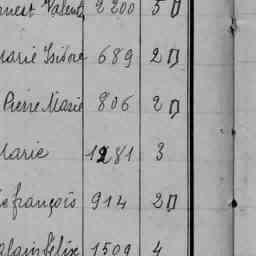 Valentin 2200 5
Marie Isidore 689 2
Pierre Marie 806 2
Marie 1281 3
François 914 2
Alain Félix 1509 4